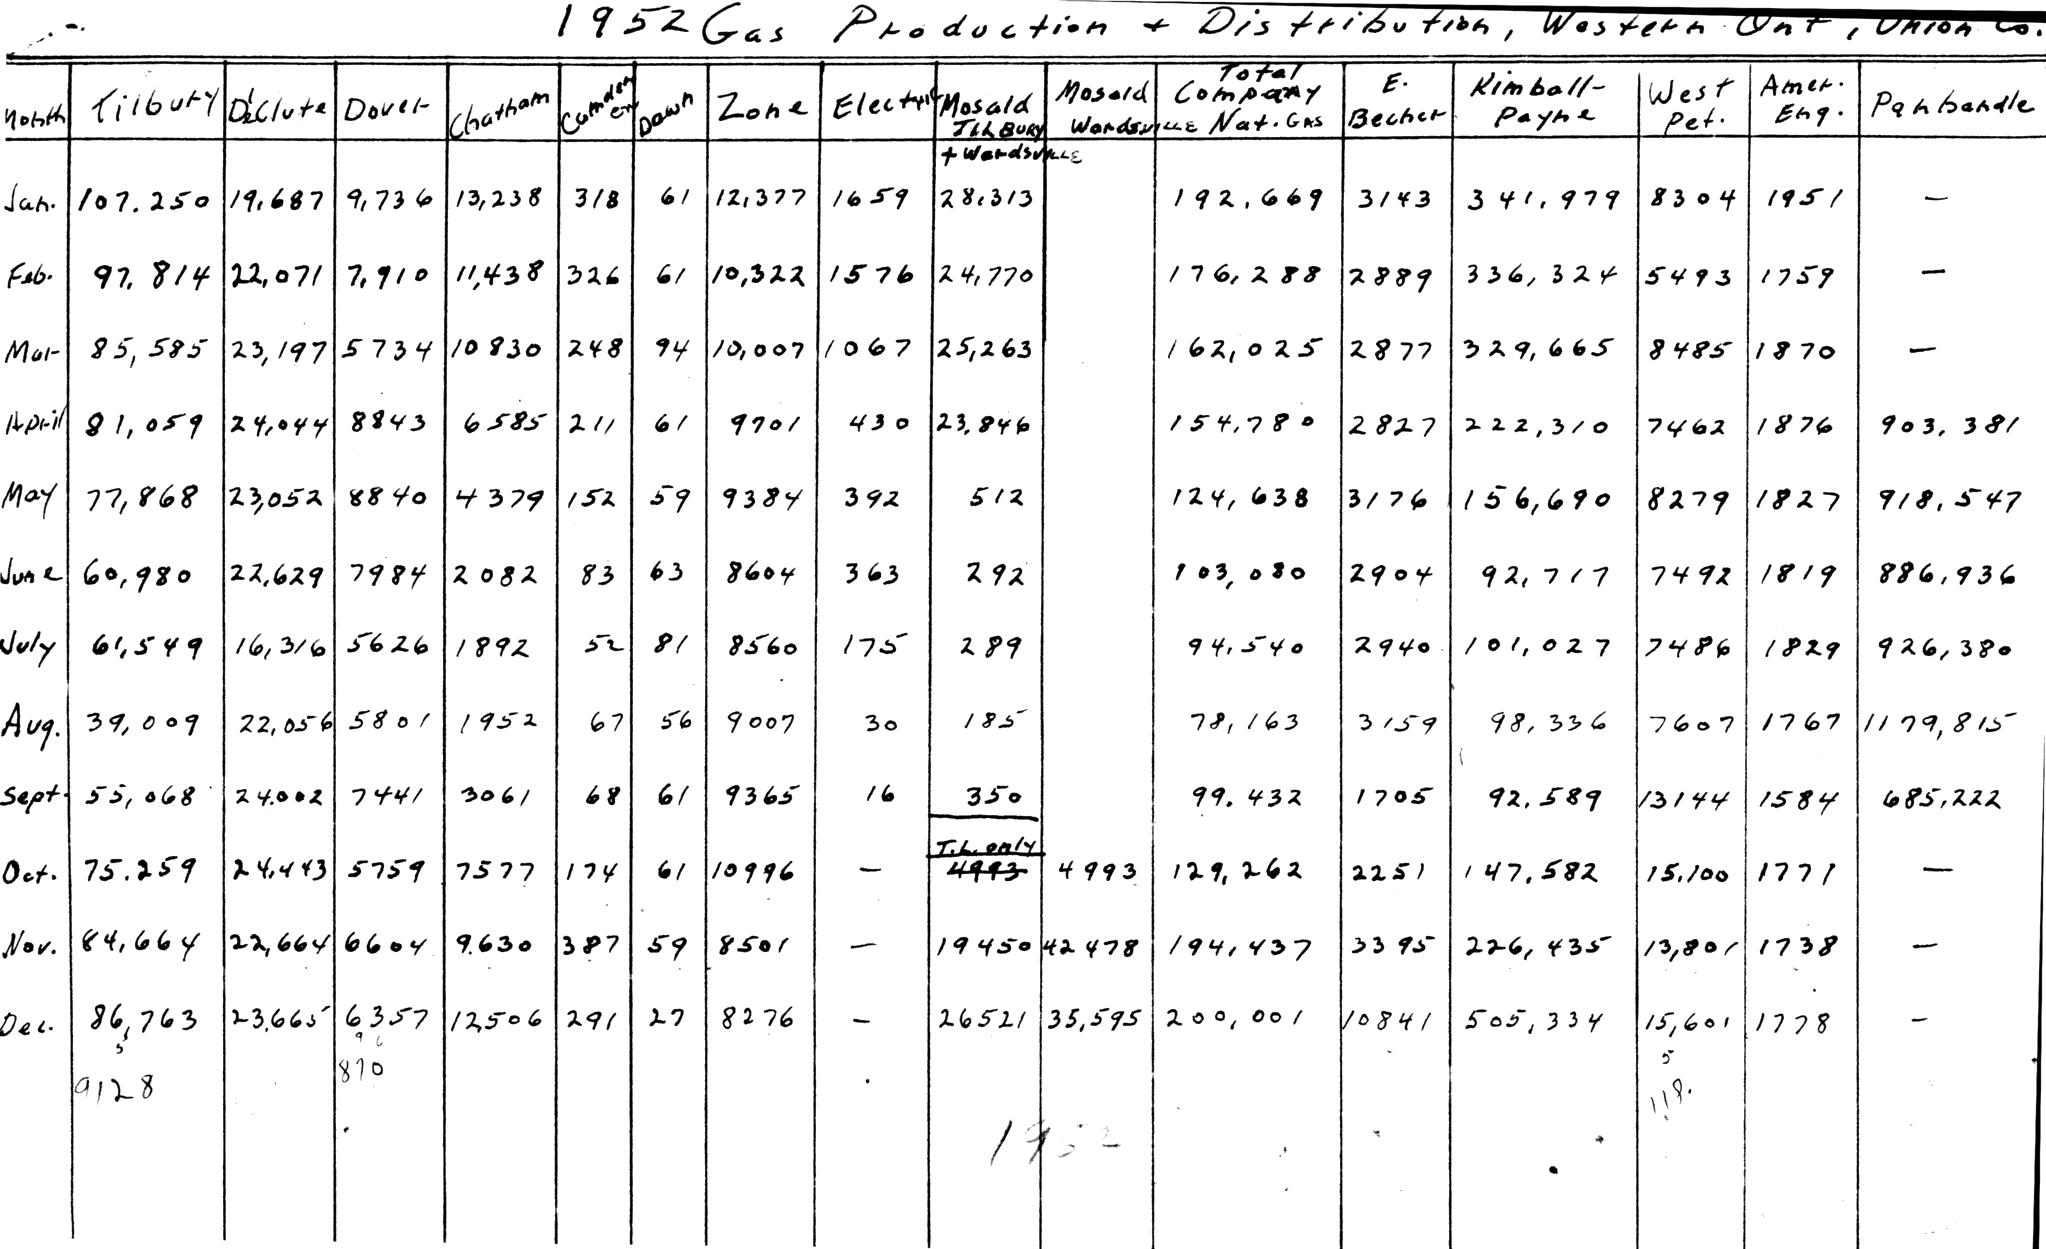 1952 Gas Production + Distribution, Western Ont, Union Co.
Month Tilbury D'Clute Dover Chatham Camden Dawn Zone Electric Mosaid TILBURY + Wardsville Mosaid Wardsville Total Company Nat. Gas E. Becher Kimball-Payne West Pet. Amer. Eng. Panhandle
Jan. 107.250 19,687 9,736 13,238 318 61 12,377 1659 28,313 192,669 3143 341,979 8304 1951 —
Feb. 97,814 22,071 7,910 11,438 326 61 10,322 1576 24,770 176,288 2889 336,324 5493 1759 —
Mar 85,585 23,197 5734 10830 248 94 10,007 1067 25,263 162,025 2877 329,665 8485 1870 —
April 81,059 24,044 8843 6585 211 61 9701 430 23,846 154,780 2827 222,310 7462 1876 903,381
May 77,868 23,052 8840 4379 152 59 9384 392 512 124,638 3176 156,690 8279 1827 918,547
June 60,980 22,629 7984 2082 83 63 8604 363 292 103,080 2904 92,717 7492 1819 886,936
July 61,549 16,316 5626 1892 52 81 8560 175 289 94,540 2940 101,027 7486 1829 926,380
Aug. 39,009 22,056 5801 1952 67 56 9007 30 185 78,163 3159 98,336 7607 1767 1179,815
Sept. 55,068 24.002 7441 3061 68 61 9365 16 350 99.432 1705 92.589 13144 1584 685,222
T.L. only
Oct. 75.259 24,443 5759 7577 174 61 10996 — 4993 4993 129,262 2251 147,582 15,100 1771 —
Nov. 84,664 22,664 6604 9.630 387 59 8501 — 19450 42478 194,437 3395 226,435 13,801 1738 —
Dec. 86,763 23,665 6357 12,506 291 27 8276 — 26521 35,595 200,001 10841 505,334 15,601 1778 —
5 9 6 5
9128 870 118.
1952